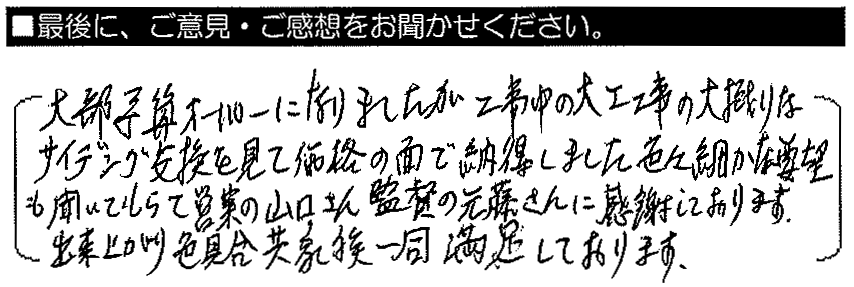 ■最後に、ご意見・ご感想をお聞かせください。
大部予算オーバーになりましたが工事中の大工事の大掛りな
サイディング交換を見て価格の面で納得しました 色々細かな要望
も聞いてもらって営業の山口さん監督の元藤さんに感謝しております。
出来上がり色具合共家族一同満足しております。